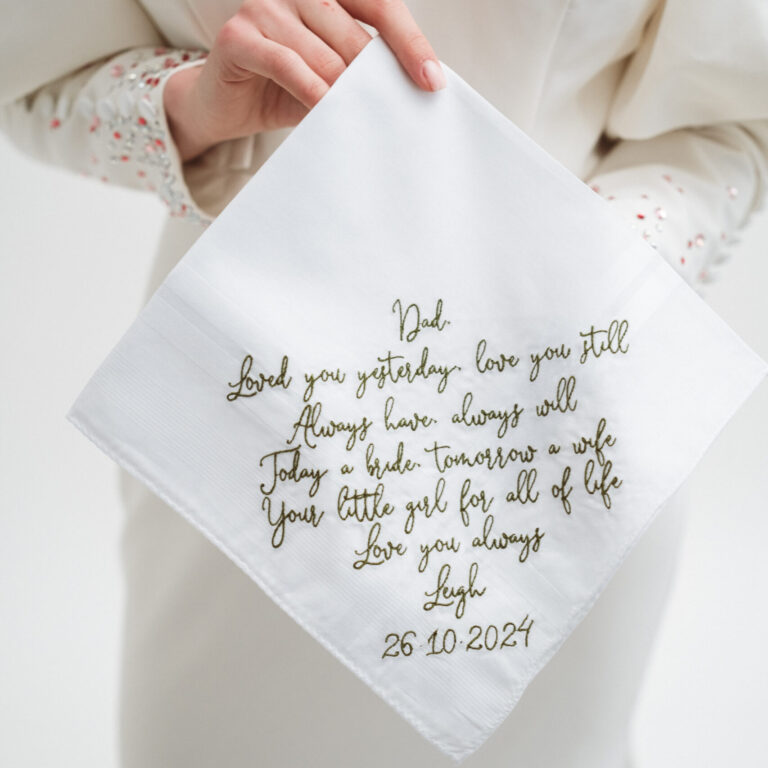 Dad.
Loved you yesterday. love you still
Always have. always will
Today a bride. tomorrow a wife
Your little girl for all of life
Love you always
Leigh
26·10·2024